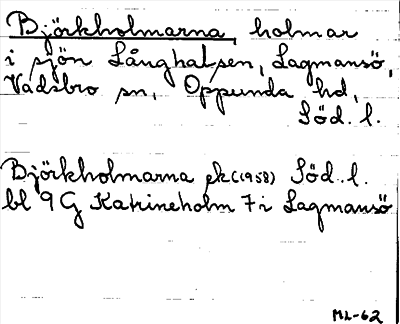 Björkholmarna, holmar
i sjön Långhalsen, Lagmansö,
Vadsbro sn, Oppunda hd,
Söd. l.
Björkholmarna ek (1958) Söd. l.
bl 9 G Katrineholm 7 i Lagmansö
ML-62